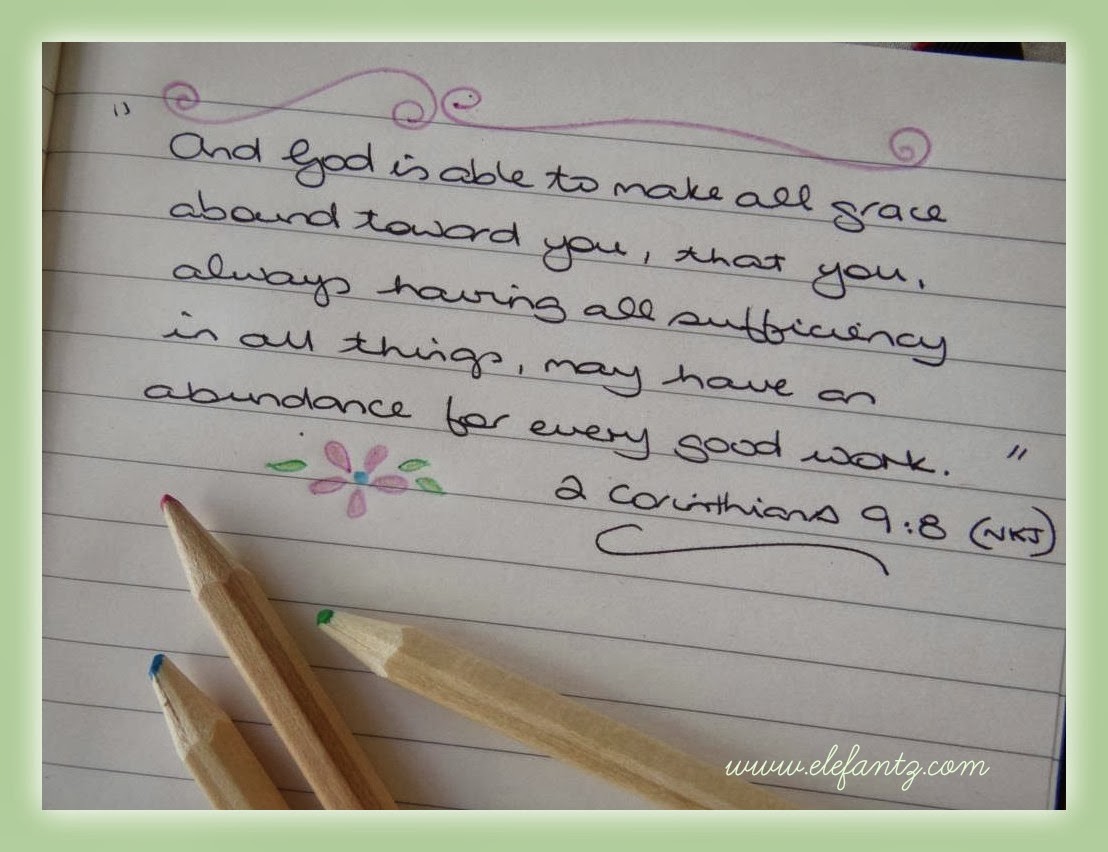 "And God is able to make all grace
abound toward you, that you,
always having all sufficiency
in all things, may have an
abundance for every good work."
2 Corinthians 9:8 (NKJ)
www.elefantz.com